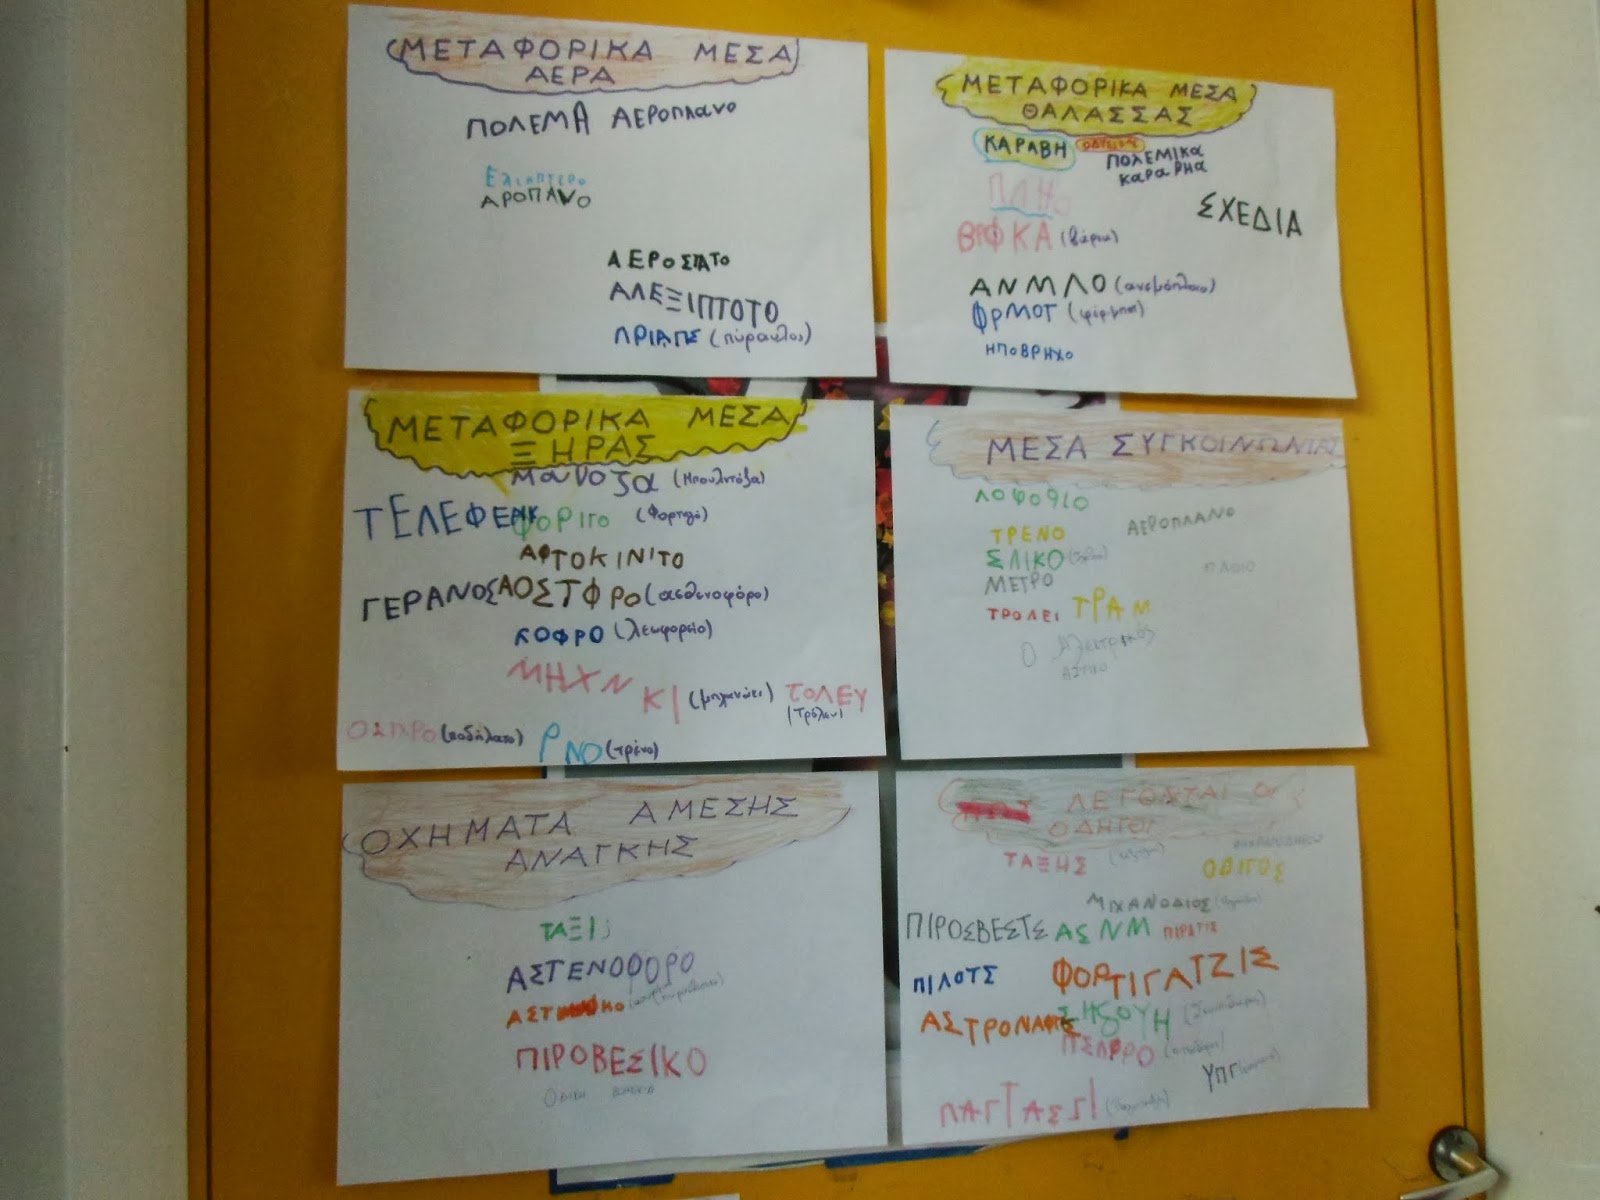 ΜΕΤΑΦΟΡΙΚΑ ΜΕΣΑ
ΑΕΡΑ
ΠΟΛΕΜΑ ΑΕΡΟΠλανο
Ελικπτερο
ΑΡΟΠΑΝΟ
ΑΕΡΟΣΤΑΤΟ
ΑΛΕΞΙΠΤΟΤΟ
(πύραυλος)
ΜΕΤΑΦΟΡΙΚΑ ΜΕΣΑ
ΘΑΛΑΣΣΑΣ
ΚΑΡΑΒΗ
ΠΟΛΕΜΙΚα
ΚαΡαΒΗα
ΠΛΗΟ
ΣΧΕΔΙΑ
ΒΡΦΚΑ (βάρκα)
ΑΝΜΛΟ (ανεμόπλοιο)
ΦΡΜΟΤ (φέρμποτ)
ΗΠΟΒΡΗΧΟ
ΜΕΤΑΦΟΡΙΚΑ ΜΕΣΑ
ΞΗΡΑΣ
Μουνοζα (Μπουλντόζα)
ΤΕΛΕΦΕΡΙΚ
ΦΟΡΙΓΟ (Φορτηγό)
ΑΦΤΟΚΙΝΙΤΟ
ΓΕΡΑΝΟΣ ΑΟΣΤΦΡΟ (ασθενοφόρο)
ΚΟΦΡΟ (λεωφορείο)
ΜΗΧΝ
ΚΙ (μηχανάκι) ΤΟΛΕΥ
(Τρόλευ)
ΟΔΠΡΟ (ποδήλατο) ΡΝΟ (τρένο)
ΜΕΣΑ ΣΥΓΚΟΙΝΩΝΙΑΣ
ΛΟΦΟΘΙΟ
ΑΕΡΟΠΛΑΝΟ
ΤΡΕΝΟ
ΣΛΙΚΟ
ΠΛΟΙΟ
ΜΕΤΡΟ
ΤΡΟΛΕΙ ΤΡΑΜ
Ο Ηλεκτρικός
ΟΧΗΜΑΤΑ ΑΜΕΣΗΣ
ΑΝΑΓΚΗΣ
ΤΑΞΙ
ΑΣΤΕΝΟΦΟΡΟ
ΠΙΡΟΒΕΣΙΚΟ
ΛΕΓΟΝΤΑΙ ΟΙ
ΟΔΗΓΟΙ
ΤΑΞΗΣ
ΟΔΙΓΟΣ
ΜΙΧΑΝΟΔΙΟΣ
ΠΙΡΟΣΒΕΣΤΕ ΑΣΝΜ ΠΙΡΑΤΙΣ
ΠΙΛΟΤΣ ΦΟΡΤΙΓΑΤΖΙΣ
ΑΣΤΡΟΝΑΦΤΕΣ
ΥΠΓ